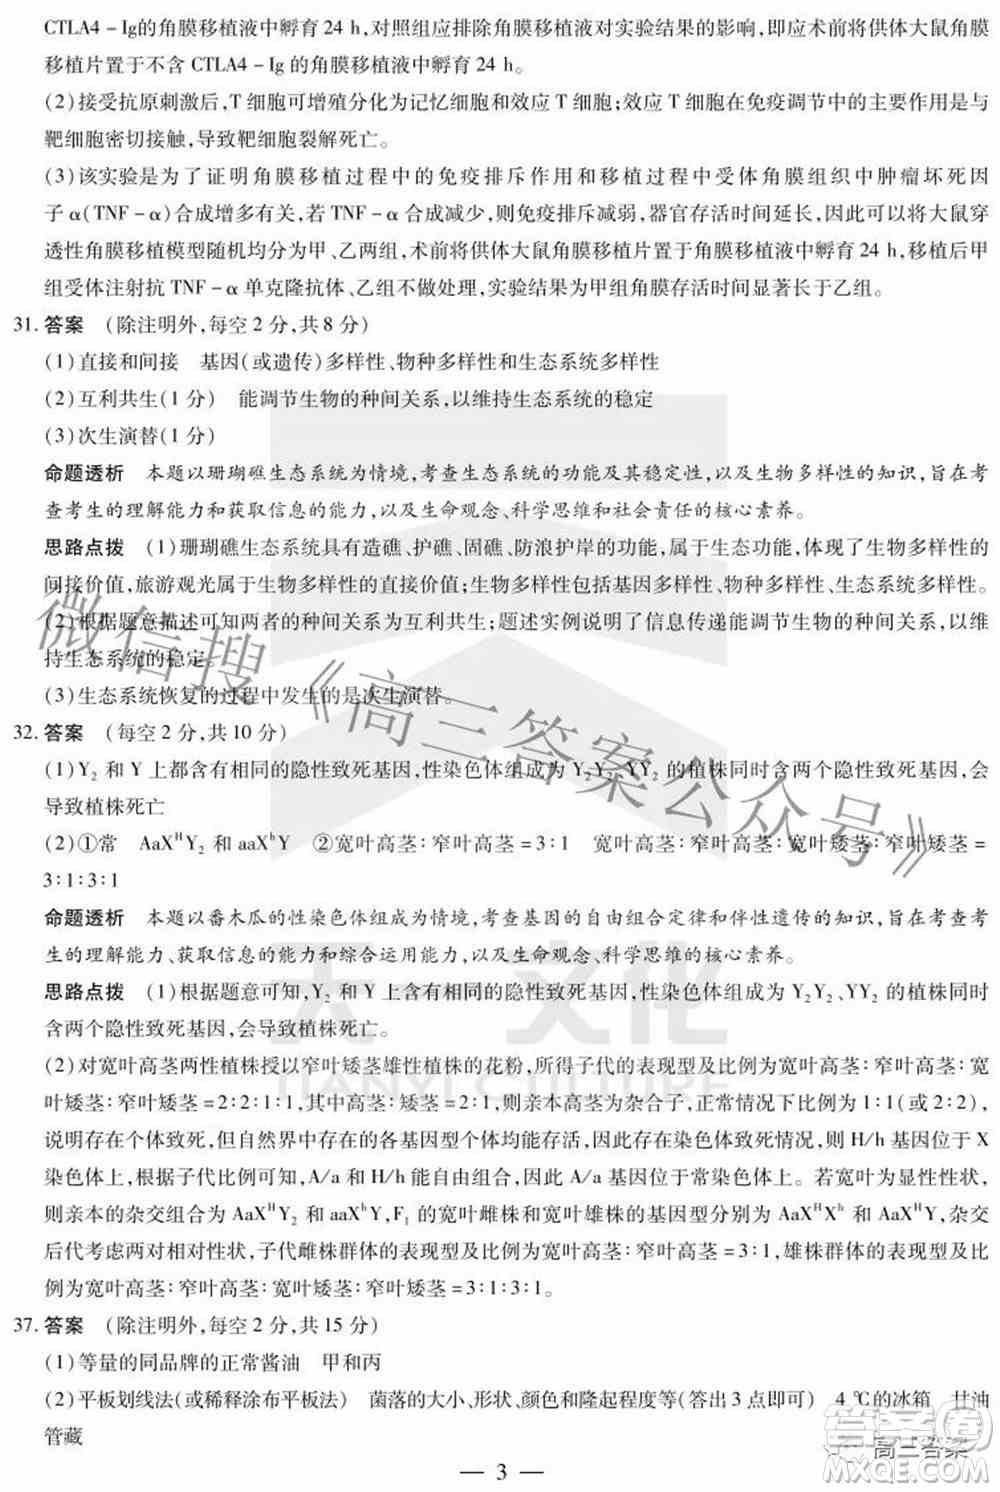 CTLA4-Ig的角膜移植液中孵育24 h,对照组应排除角膜移植液对实验结果的影响,即应术前将供体大鼠角膜
移植片置于不含CTLA4-Ig的角膜移植液中孵育24 h。
(2)接受抗原刺激后,T细胞可增殖分化为记忆细胞和效应T细胞;效应T细胞在免疫调节中的主要作用是与
靶细胞密切接触,导致靶细胞裂解死亡。
(3)该实验是为了证明角膜移植过程中的免疫排斥作用和移植过程中受体角膜组织中肿瘤坏死因
子α(TNF-α)合成增多有关,若TNF-α合成减少,则免疫排斥减弱,器官存活时间延长,因此可以将大鼠穿
透性角膜移植模型随机均分为甲、乙两组,术前将供体大鼠角膜移植片置于角膜移植液中孵育24 h,移植后甲
组受体注射抗TNF-α单克隆抗体、乙组不做处理,实验结果为甲组角膜存活时间显著长于乙组。
31. 答案 (除注明外,每空2分,共8分)
(1)直接和间接 基因(或遗传)多样性、物种多样性和生态系统多样性
(2)互利共生(1分) 能调节生物的种间关系,以维持生态系统的稳定
(3)次生演替(1分)
命题透析 本题以珊瑚礁生态系统为情境,考查生态系统的功能及其稳定性,以及生物多样性的知识,旨在考
查考生的理解能力和获取信息的能力,以及生命观念、科学思维和社会责任的核心素养。
思路点拨 (1)珊瑚礁生态系统具有造礁、护礁、固礁、防浪护岸的功能,属于生态功能,体现了生物多样性的
间接价值,旅游观光属于生物多样性的直接价值;生物多样性包括基因多样性、物种多样性、生态系统多样性。
(2)根据题意描述可知两者的种间关系为互利共生;题述实例说明了信息传递能调节生物的种间关系,以维
持生态系统的稳定。
(3)生态系统恢复的过程中发生的是次生演替。
32. 答案 (每空2分,共10分)
(1)Y₂和Y上都含有相同的隐性致死基因,性染色体组成为Y₂Y₂、YY₂的植株同时含两个隐性致死基因,会
导致植株死亡
(2)①常 AaXᴴY₂和aaXʰY ②宽叶高茎:窄叶高茎=3:1 宽叶高茎:窄叶高茎:宽叶矮茎:窄叶矮茎=
3:1:3:1
命题透析 本题以番木瓜的性染色体组成为情境,考查基因的自由组合定律和伴性遗传的知识,旨在考查考
生的理解能力、获取信息的能力和综合运用能力,以及生命观念、科学思维的核心素养。
思路点拨 (1)根据题意可知,Y₂和Y上含有相同的隐性致死基因,性染色体组成为Y₂Y₂、YY₂的植株同时
含两个隐性致死基因,会导致植株死亡。
(2)对宽叶高茎两性植株授以窄叶矮茎雄性植株的花粉,所得子代的表现型及比例为宽叶高茎:窄叶高茎:宽
叶矮茎:窄叶矮茎=2:2:1:1,其中高茎:矮茎=2:1,则亲本高茎为杂合子,正常情况下应为1:1(或2:2),
说明存在个体致死,但自然界中存在的各基因型个体均能存活,因此存在染色体致死情况,则H/h基因位于X
染色体上,根据子代比例可知,A/a与H/h能自由组合,因此A/a基因位于常染色体上。若宽叶为显性性状,
则亲本的杂交组合为AaXᴴY₂和aaXʰY,F₁的宽叶雌株和宽叶雄株的基因型分别为AaXᴴXʰ和AaXʰY,杂交
后代考虑两对相对性状,子代雌株群体的表现型及比例为宽叶高茎:窄叶高茎=3:1,雄株群体的表现型及比
例为宽叶高茎:窄叶高茎:宽叶矮茎:窄叶矮茎=3:1:3:1。
37. 答案 (除注明外,每空2分,共15分)
(1)等量的同品牌的正常酱油 甲和丙
(2)平板划线法(或稀释涂布平板法) 菌落的大小、形状、颜色和隆起程度等(答出3点即可) 4 ℃的冰箱 甘油
管藏
— 3 —
微信搜《高三答案公众号》
天一文化
TIANYI CULTURE
高三答案
答案圈
MXQE.COM